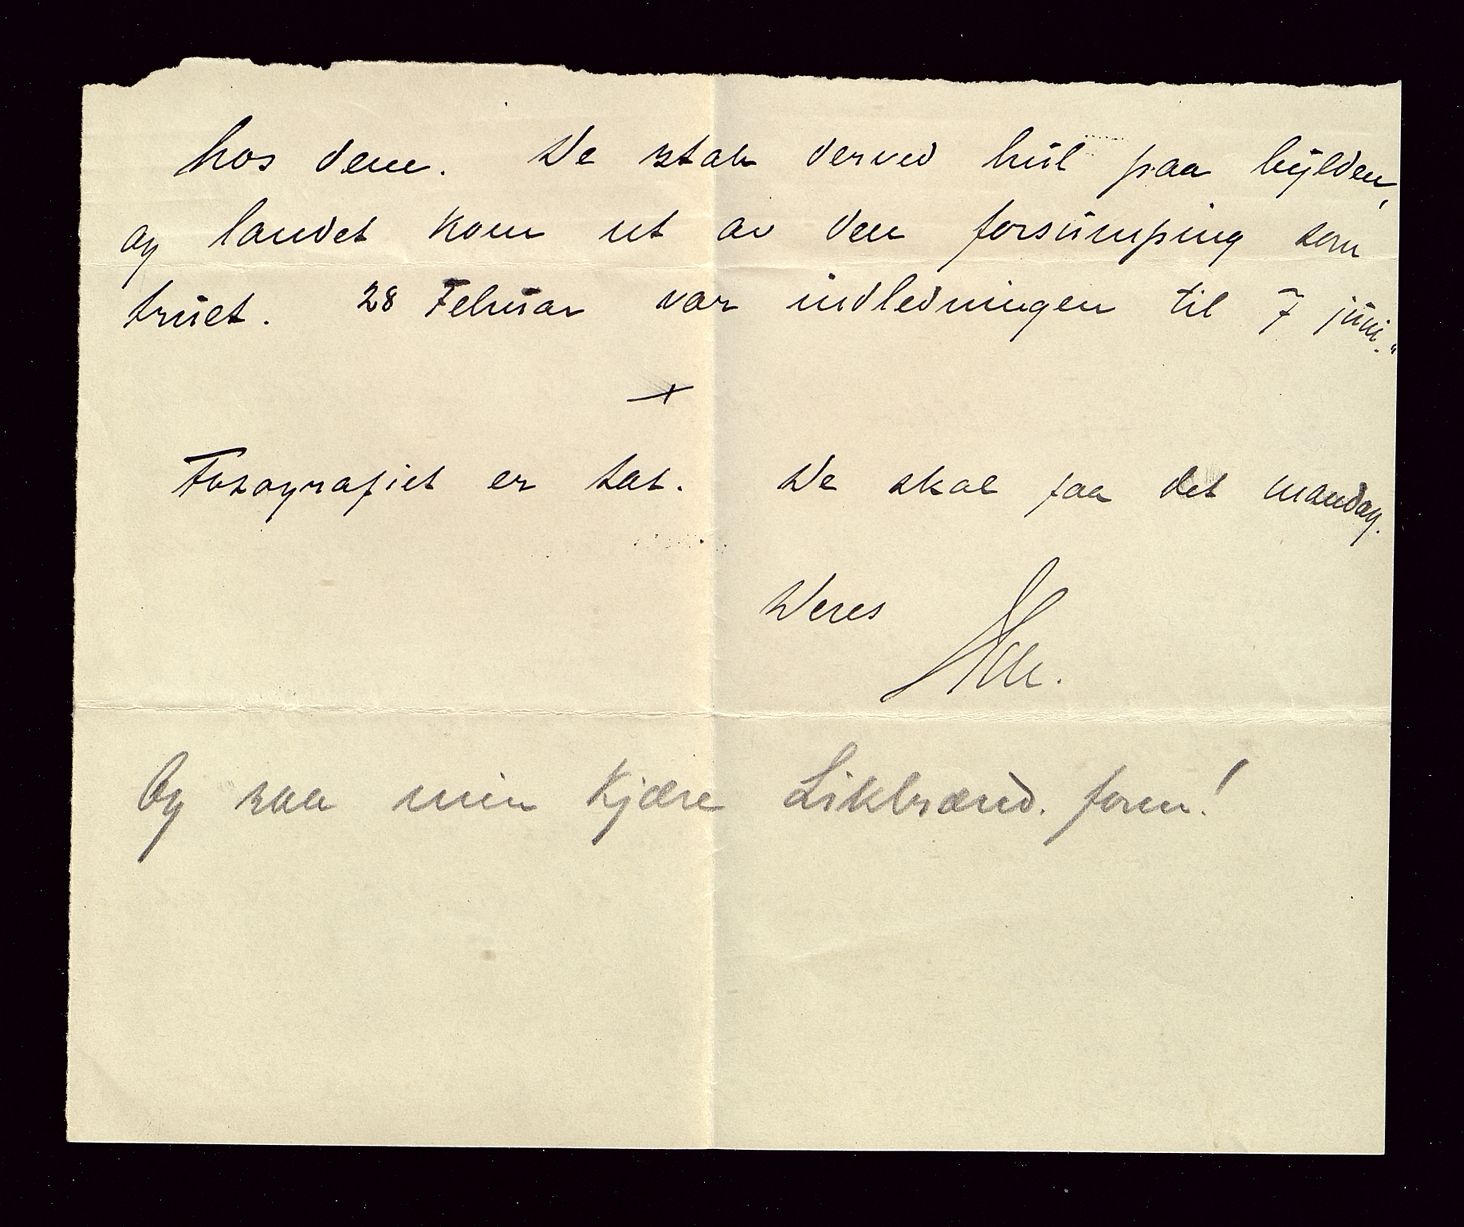 hos dem. De stak derved hul paa bylden,
og landet kom ut av den forsumping som
truet. 28 Februar var indledningen til 7 juni."
Fotografiet er tat. De skal faa det mandag.
Deres
Og saa min kjære Likbrænd. foren!